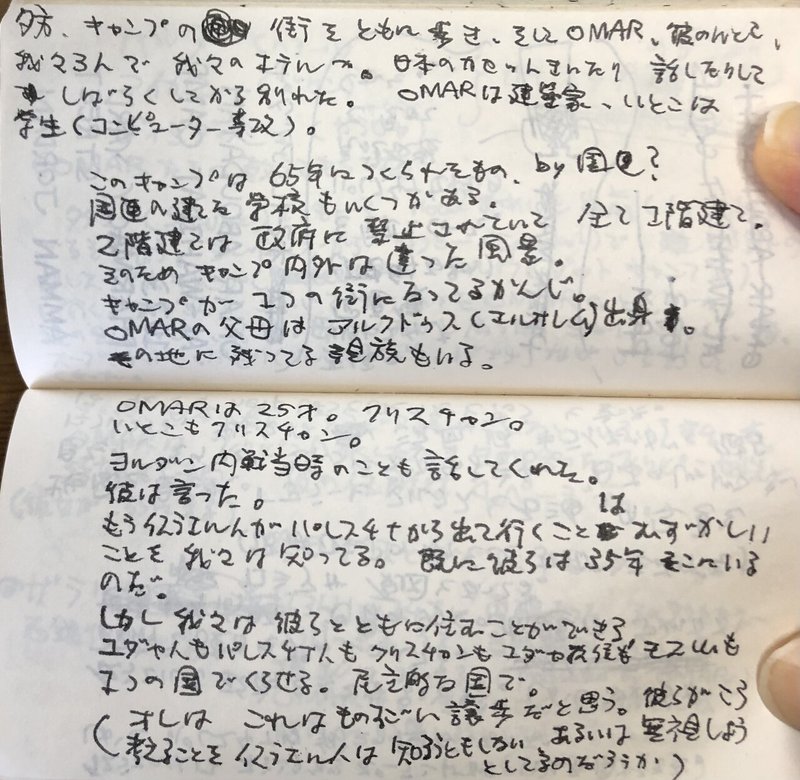 夕方、キャンプの 街をともに歩き、そしてOMAR、彼のいとこ、
我々3人で 我々のホテルへ。日本のカセットきいたり 話したりして
しばらくしてから別れた。 OMARは建築家、いとこは
学生(コンピューター専攻)。
このキャンプは 65年につくられたもの、by 国連?
国連の建てた 学校もいくつかある。
2階建ては 政府に 禁止されていて 全て1階建て。
そのため キャンプ内外は 違った 風景。
キャンプが 1つの街になってるかんじ。
OMARの父母は アルクドゥス(エルサレム)出身。
その地に 残ってる 親族もいる。
OMARは 25才。 クリスチャン。
いとこもクリスチャン。
ヨルダン内戦当時のことも 話してくれた。
彼は言った。
もうイスラエル人が パレスチナから出て行くことは むずかしい
ことを 我々は 知ってる。 既に彼らは 35年 そこにいる
のだ。
しかし 我々は 彼らとともに住むことができる
ユダヤ人も パレスチナ人も クリスチャンも ユダヤ教徒も モスリムも
1つの国でくらせる。 民主的な国で。
(オレは これはものすごい 譲歩だと思う。 彼らがこう
考えることを イスラエル人は 知ろうともしない あるいは 無視しよう
としてるのだろうか)